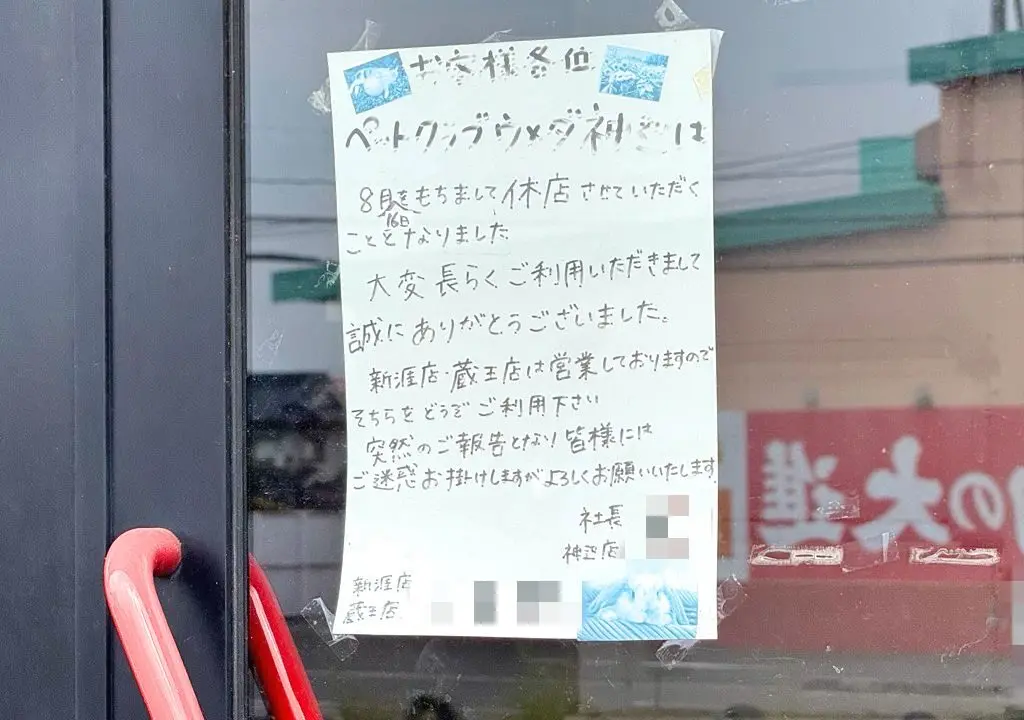 お客様各位
ペットクラブウメダ神辺は
8月をもちまして休店させていただく
16日
こととなりました
大変長らくご利用いただきまして
誠にありがとうございました。
新涯店・蔵王店は営業しておりますので
そちらをどうぞご利用下さい
突然のご報告となり皆様には
ご迷惑お掛けしますがよろしくお願いいたします
社長
神辺店
新涯店
蔵王店
の大進